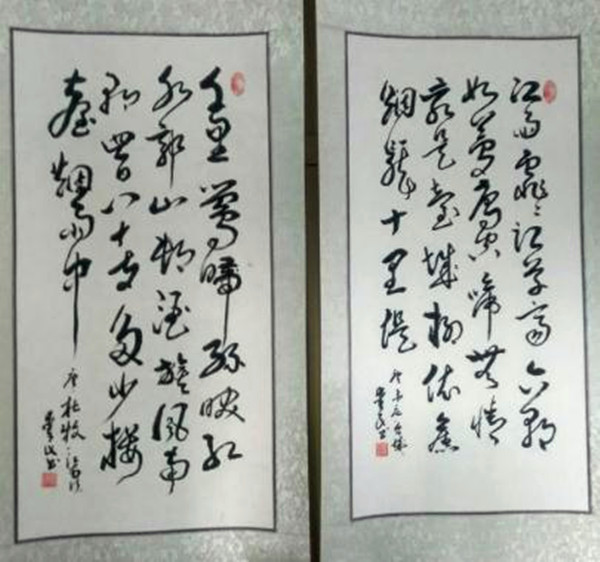 江雨霏霏江草齊六朝
如夢鳥空啼無情
最是臺城柳依舊
煙籠十里堤
千里鶯啼綠映紅
水郭山村酒旗風南
朝四百八十寺多少樓
臺煙雨中
唐杜牧江南